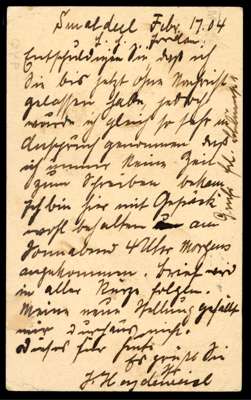 Smaldeyl Febr. 17. 04
Entschuldigen Sie, daß ich
Sie bis jetzt ohne Nachricht
gelassen habe, jedoch
wurde ich gleich so sehr in
Anspruch genommen, daß
ich immer keine Zeit
zum Schreiben bekam.
Ich bin hier mit Gepäck
wohl behalten am
Sonnabend 4 Uhr Morgens
angekommen. Brief wird
in aller Kürze folgen.
Meine neue Stellung gefällt
mir durchaus nicht.
für heute
Es grüßt Sie
J. Heydenreich